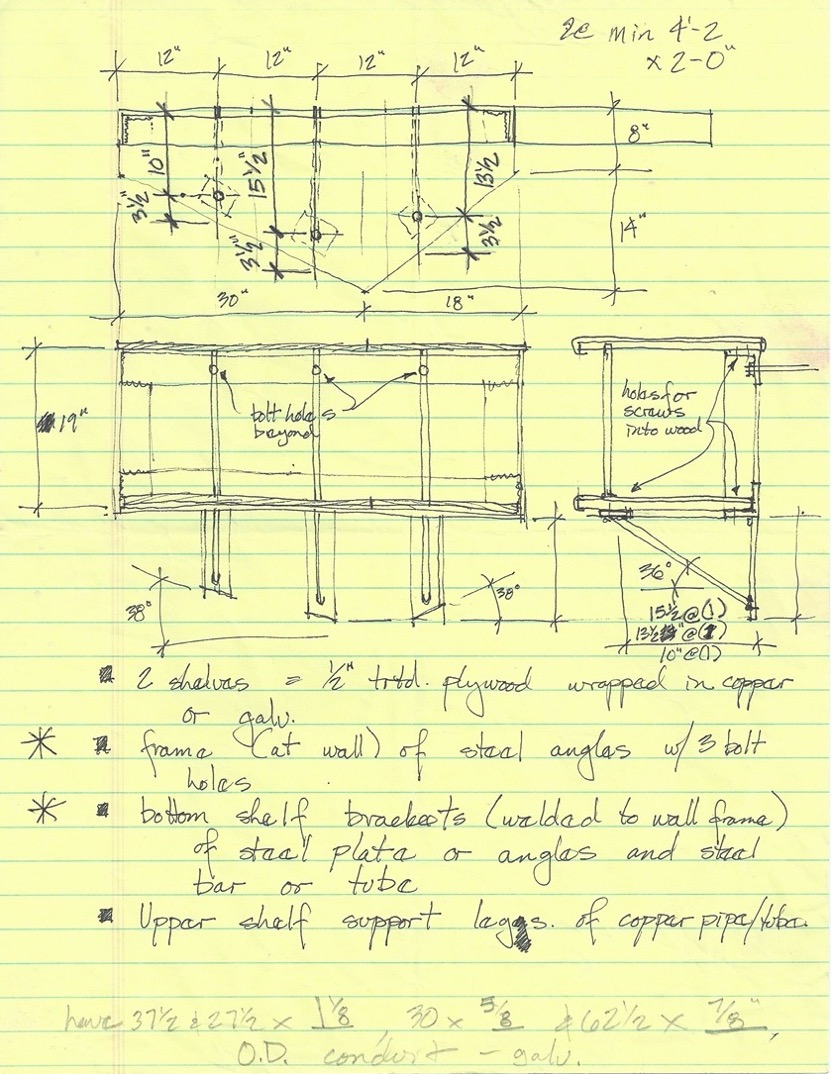 2e min 4'-2
x 2-0"
12" 12" 12" 12"
8"
10" 15 1/2" 13 1/2
3 1/2" 3 1/2" 3 1/2
14"
30" 18"
19"
bolt holes
beyond
holes for
screws
into wood
38° 38° 36°
15 1/2 @(1)
13 1/2" @(1)
10" @(1)
2 shelves = 1/2" trtd. plywood wrapped in copper
or galv.
* frame (at wall) of steel angles w/ 3 bolt
holes
* bottom shelf brackets (welded to wall frame)
of steel plate or angles and steel
bar or tube
Upper shelf support legs. of copper pipe/tube.
have 37 1/2 & 27 1/2 x 1 1/8, 30 x 5/8 & 62 1/2 x 7/8",
O.D. conduit - galv.